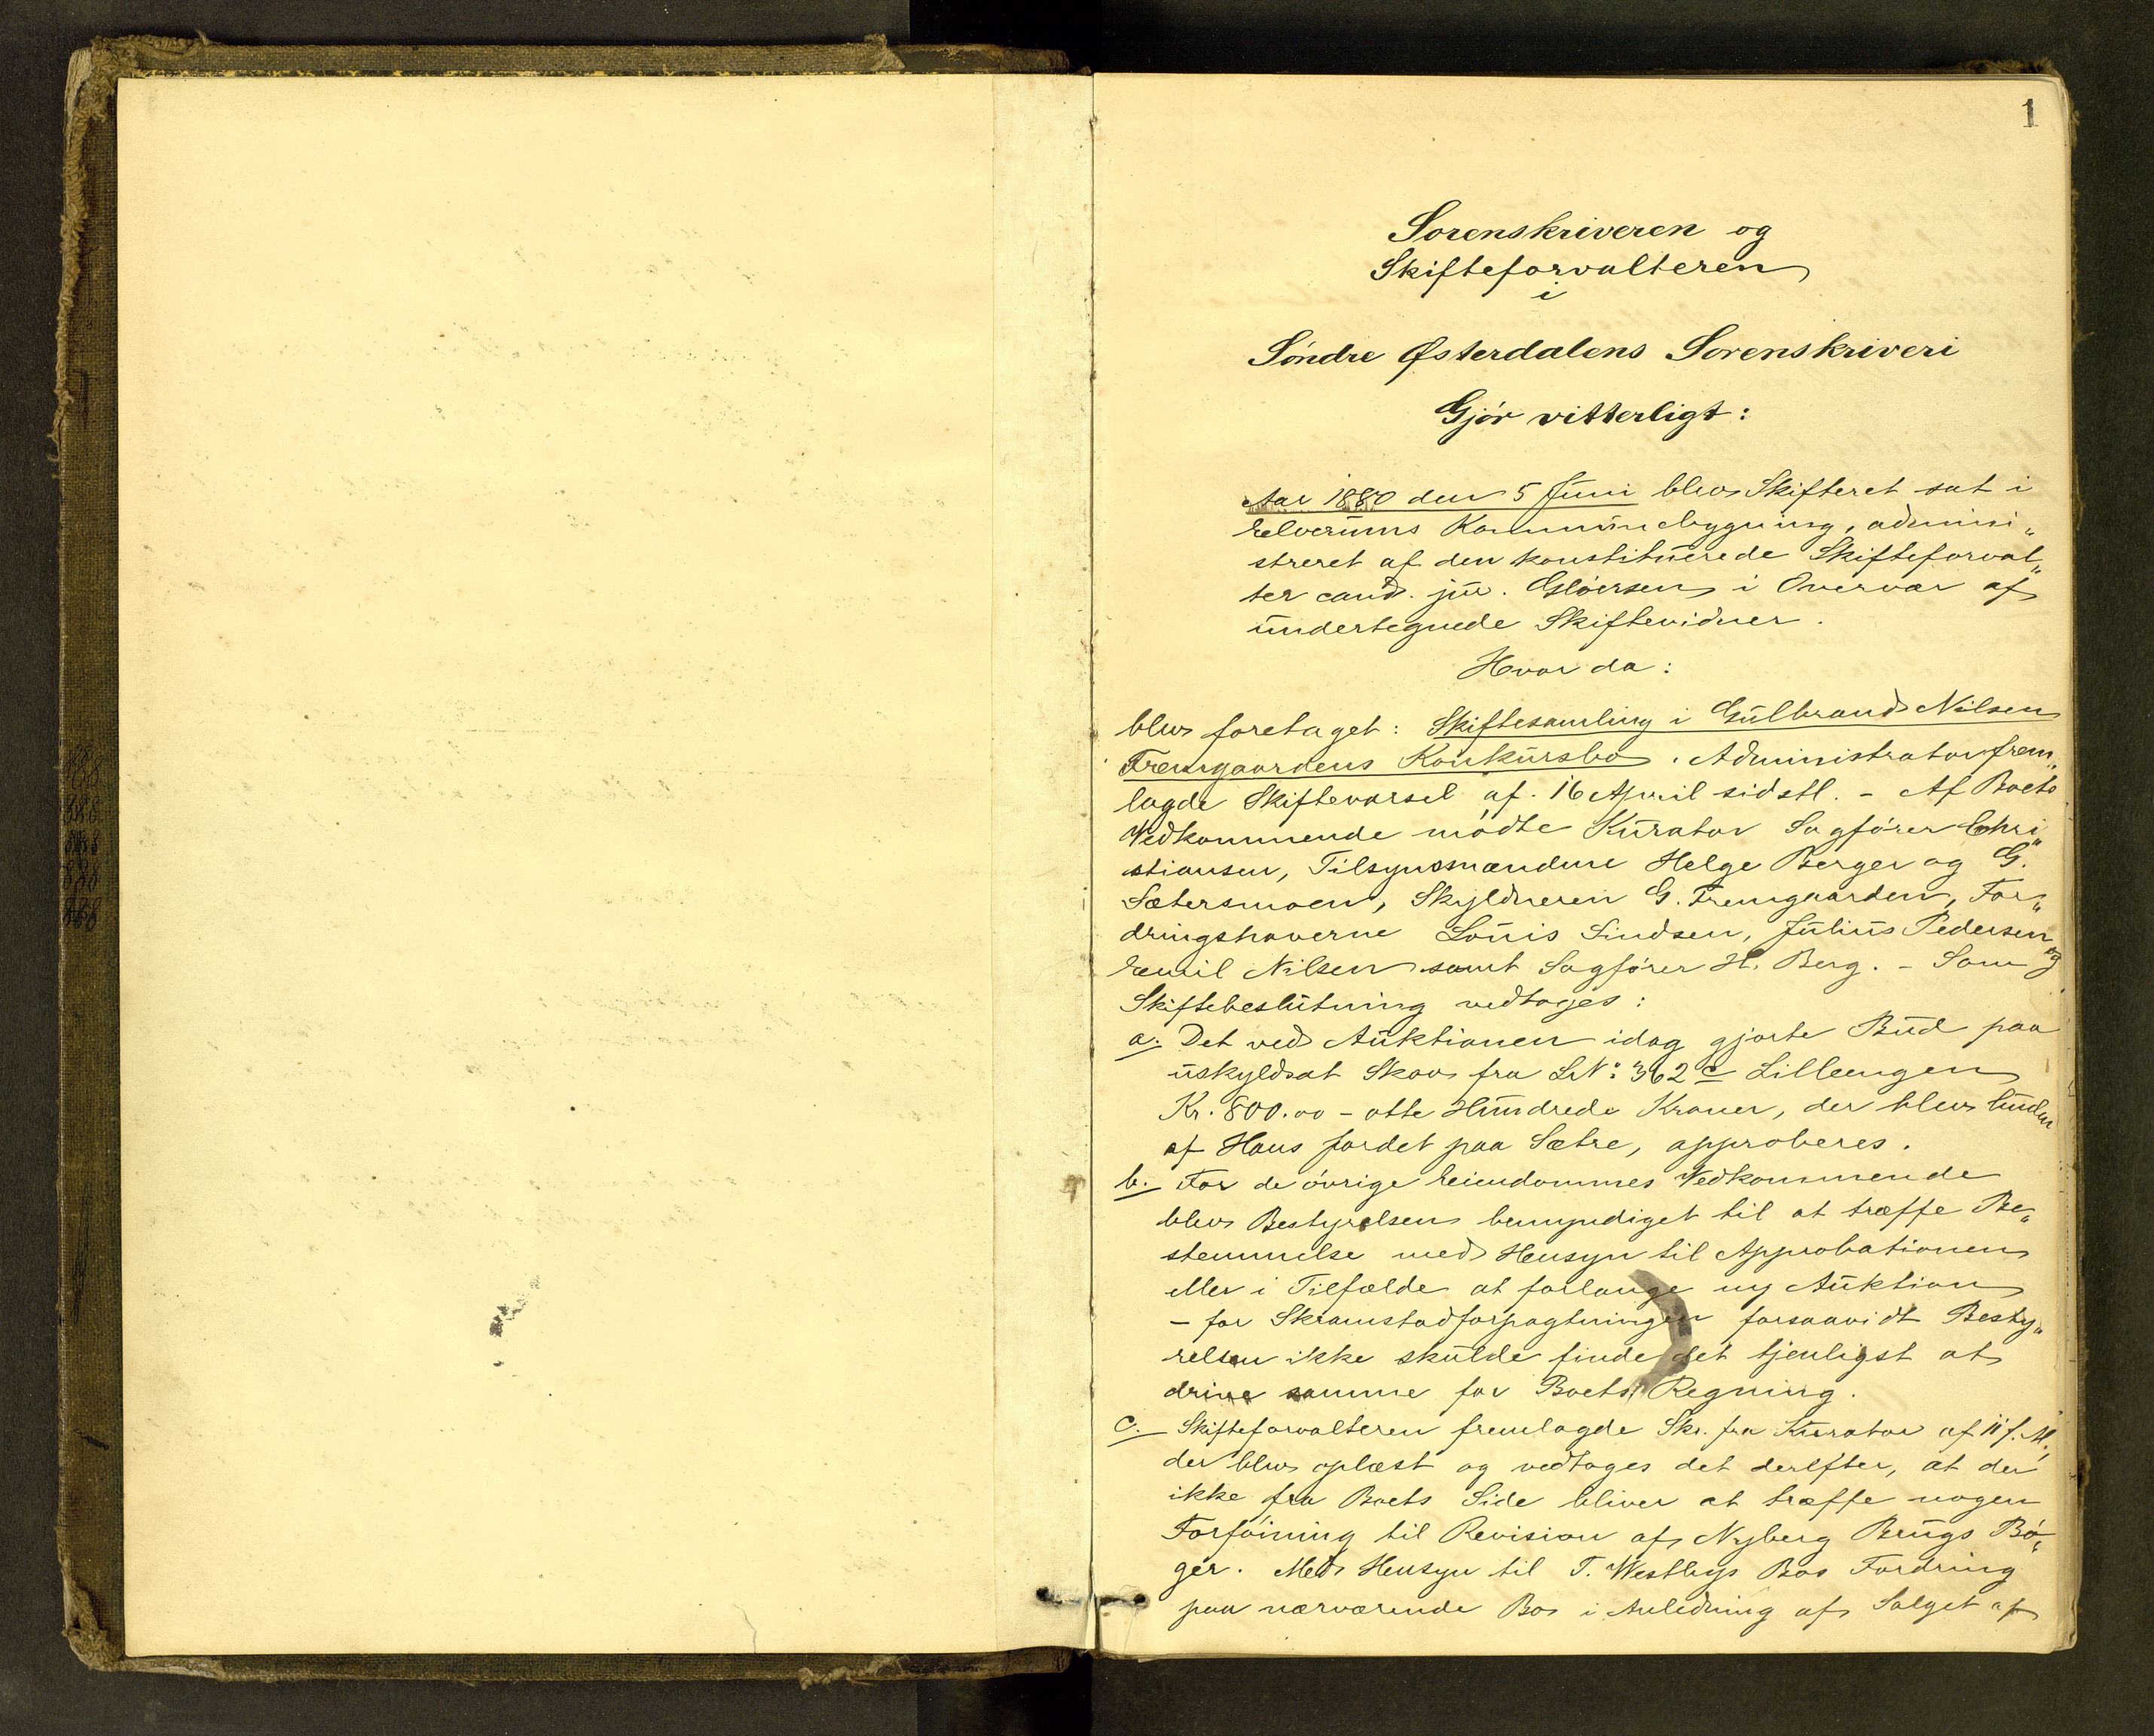 1
Sorenskriveren og
Skifteforvalteren
i
Söndre Østerdalens Sorenskriveri
Gjör vitterligt:
Aar 1880 den 5 Juni blev Skifteret sat i
Elverums Kommunebygning, admini„
streret af den konstituerede Skifteforval„
ter cand. jur. Glöersen i Overvær af
undertegnede Skiftevidner.
Hvor da:
blev foretaget: Skiftesamling i Gulbrand Nilsen
Fremgaardens Konkursbo. Administrator frem„
lagde Skiftevarsel af 16 April sidstl. - Af Boets
Vedkommende mödte Kurator Sagförer Chri„
stiansen, Tilsynsmændene Helge Berger og G.
Sætersmoen, Skyldneren G. Fremgaarden, For„
dringshaverne Louis Lindsen, Julius Pedersen og
Emil Nilsen samt Sagförer H. Berg. - Som
Skiftebeslutning vedtoges:
a. Det ved Auktionen idag gjorte Bud paa
uskyldsat Skov fra LN: 362 c Lilleengen
Kr. 800.00 - otte Hundrede Kroner, der blev buden
af Hans Jordet paa Sætre, approberes.
b. For de övrige Eiendommes Vedkommende
blev Bestyrelsen bemyndiget til at træffe Be„
stemmelse med Hensyn til Approbationen
eller i Tilfælde at forlange ny Auktion
- for Skramstadforpagtningen forsaavidt Besty„
relsen ikke skulde finde det tjenligst at
drive samme for Boets Regning.
c. Skifteforvalteren fremlagde Skr. fra Kurator af 11 f. M.,
der blev oplæst og vedtoges det derefter, at der
ikke fra Boets Side bliver at træffe nogen
Forföining til Revision af Nyberg Brugs Bö„
ger. Med Hensyn til T. Westbys Bos Fordring
paa nærværende Bo i Anledning af Salget af